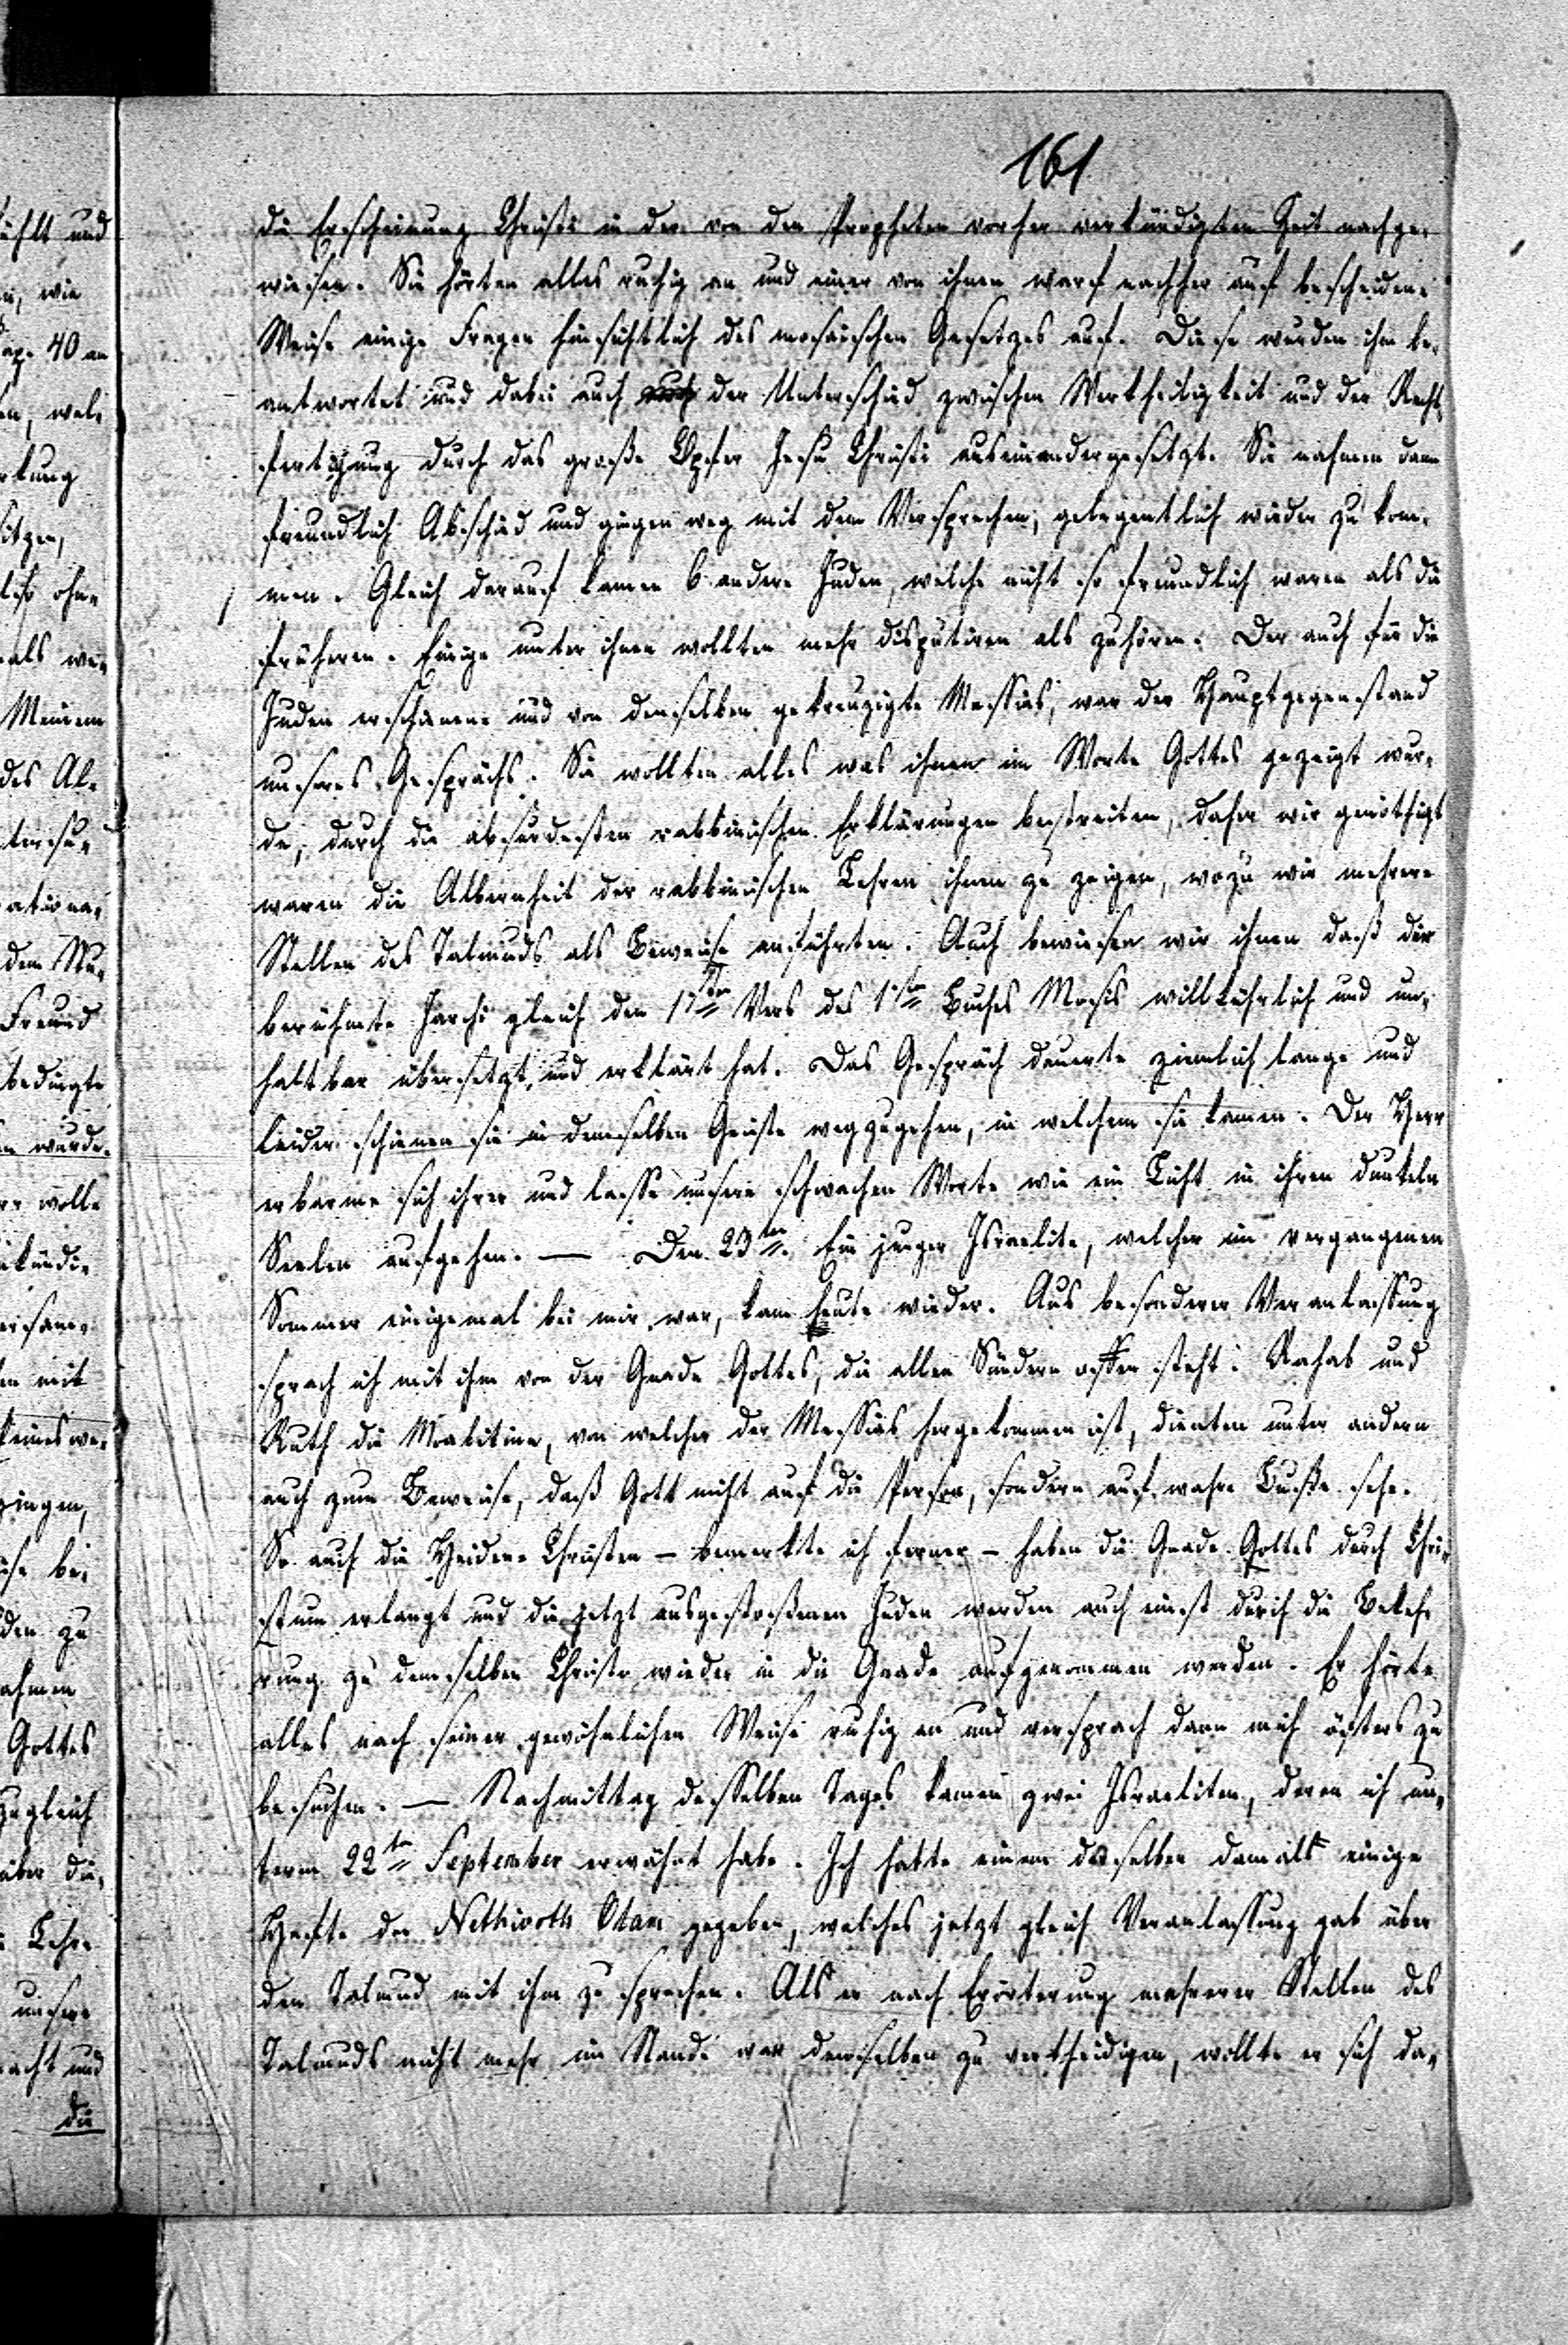 161
die Erscheinung Christi in der von den Propheten vorher verkündigten Zeit nachge-
wiesen. Sie hörten alles ruhig an und einer von ihnen warf nachher auf bescheidene
Weise einige Fragen hinsichtlich des mosaischen Gesetzes auf. Diese wurden ihm be-
antwortet und dabei auch der Unterschied zwischen Werkheiligkeit und der Recht-
fertigung durch das große Opfer Jesu Christi auseinandergesetzt. Sie nahmen dann
freundlich Abschied und gingen weg mit dem Versprechen, gelegentlich wieder zu kom-
men. Gleich darauf kamen 6 andere Juden, welche nicht so freundlich waren als die
früheren. Einige unter ihnen wollten mehr disputiren als zuhören. Der auch für die
Juden erschienene und von denselben gekreuzigte Messias, war der Hauptgegenstand
unseres Gesprächs. Sie wollten alles was ihnen im Worte Gottes gezeigt wur-
de, durch die absurdesten rabbinischen Erklärungen bestreiten, daher wir genöthigt
waren die Albernheit der rabbinischen Lehren ihnen zu zeigen, wozu wir mehrere
Stellen des Talmuds als Beweise anführten. Auch bewiesen wir ihnen daß der
berühmte Jarchi gleich den 1sten Vers des 1sten Buches Mosis willkührlich und un-
haltbar übersetzt, und erklärt hat. Das Gespräch dauerte ziemlich lange und
leider schienen sie in demselben Geiste wegzugehen, in welchem sie kamen. Der Herr
erbarme sich ihrer und lasse unsere schwachen Worte wie ein Licht in ihren dunkeln
Seelen aufgehen. — Den 23ten. Ein junger Israelite, welcher im vergangenen
Sommer einigemal bei mir war, kam heute wieder. Aus besonderer Veranlassung
sprach ich mit ihm von der Gnade Gottes, die allen Sündern offen steht. Rahab und
Ruth die Moabitin, von welcher der Messias hergekommen ist, dienten unter andern
auch zum Beweise, daß Gott nicht auf die Person, sondern auf wahre Buße sehe.
So auch die Heiden-Christen – bemerkte ich ferner – haben die Gnade Gottes durch Chri-
stum erlangt und die jetzt ausgestoßenen Juden werden auch einst durch die Bekeh-
rung zu demselben Christo wieder in die Gnade aufgenommen werden. Er hörte
alles nach seiner gewöhnlichen Weise ruhig an und versprach dann mich öfters zu
besuchen. — Nachmittag desselben Tages kamen zwei Israeliten, deren ich un-
term 22ten September erwähnt habe. Ich hatte einem derselben damals einige
Hefte der Nethivoth Olam gegeben, welches jetzt gleich Veranlassung gab über
den Talmud mit ihm zu sprechen. Als er nach Erörterung mehrerer Stellen des
Talmuds nicht mehr im Stande war denselben zu vertheidigen, wollte er sich da-